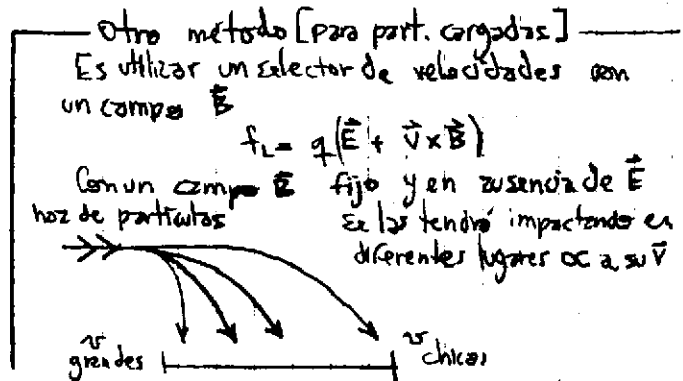 Otro método [para part. cargadas]
Es utilizar un selector de velocidades con
un campo B⃗
f_L = q(E⃗ + v⃗ x B⃗)
Con un campo B⃗ fijo y en ausencia de E⃗
haz de partículas
se las tendrá impactando en
diferentes lugares ∝ a su v⃗
v grandes
v chicas